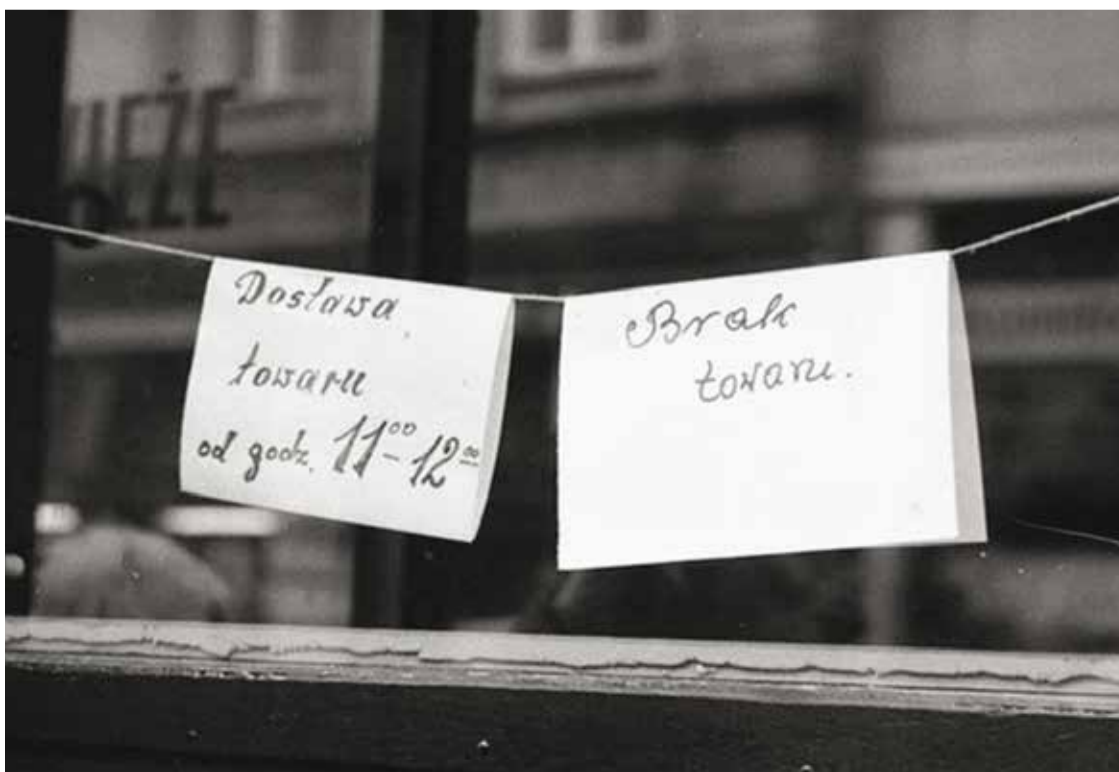 Dostawa
towaru
od godz. 11⁰⁰-12⁰⁰
Brak
towaru.